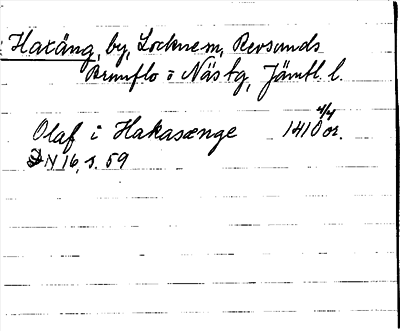 Haxäng, by, Lockne sn, Revsunds
Brunflo o Näs tg, Jämtl. l.
Olaf i Hakasænge 1410 4/4 or.
DN 16, s. 59